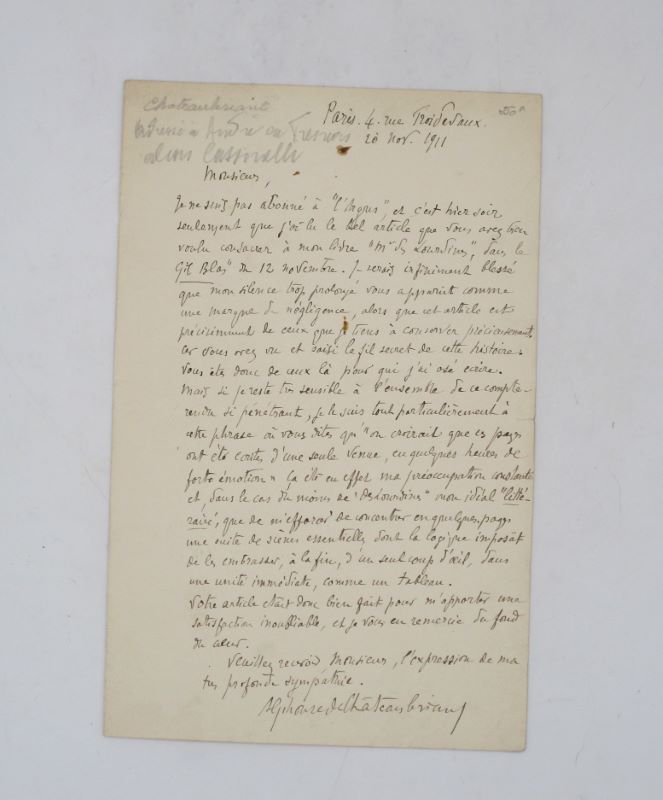 Chateaubriant
adressé à André du Fresnois
alias Cassinelli
50 f
Paris. 4. rue Froidevaux.
20 Nov. 1911
Monsieur,
Je ne suis pas abonné à "l'Argus", et c'est hier soir
seulement que j'ai lu le bel article que vous avez bien
voulu consacrer à mon livre "Mr des Lourdines", dans le
Gil Blas" du 12 novembre. Je serais infiniment blessé
que mon silence trop prolongé vous apparut comme
une marque de négligence, alors que cet article est
précisément de ceux que je tiens à conserver précieusement,
car vous avez vu et saisi le fil secret de cette histoire.
Vous êtes donc de ceux là pour qui j'ai osé écrire.
Mais si je reste très sensible à l'ensemble de ce compte-
rendu si pénétrant, je le suis tout particulièrement à
cette phrase où vous dites qu'"on croirait que ces pages
ont été écrites d'une seule venue, en quelques heures de
forte émotion" Ça été en effet ma préoccupation constante
et, dans le cas du moins de "Des Lourdines" mon idéal "litté-
raire", que de m'efforcer de concentrer en quelques pages
une suite de scènes essentielles dont la logique imposât
de les embrasser, à la fin, d'un seul coup d'œil, dans
une unité immédiate, comme un tableau.
Votre article était donc bien fait pour m'apporter une
satisfaction inoubliable, et je vous en remercie du fond
du cœur.
Veuillez recevoir Monsieur, l'expression de ma
très profonde sympathie.
Alphonse de Châteaubriant